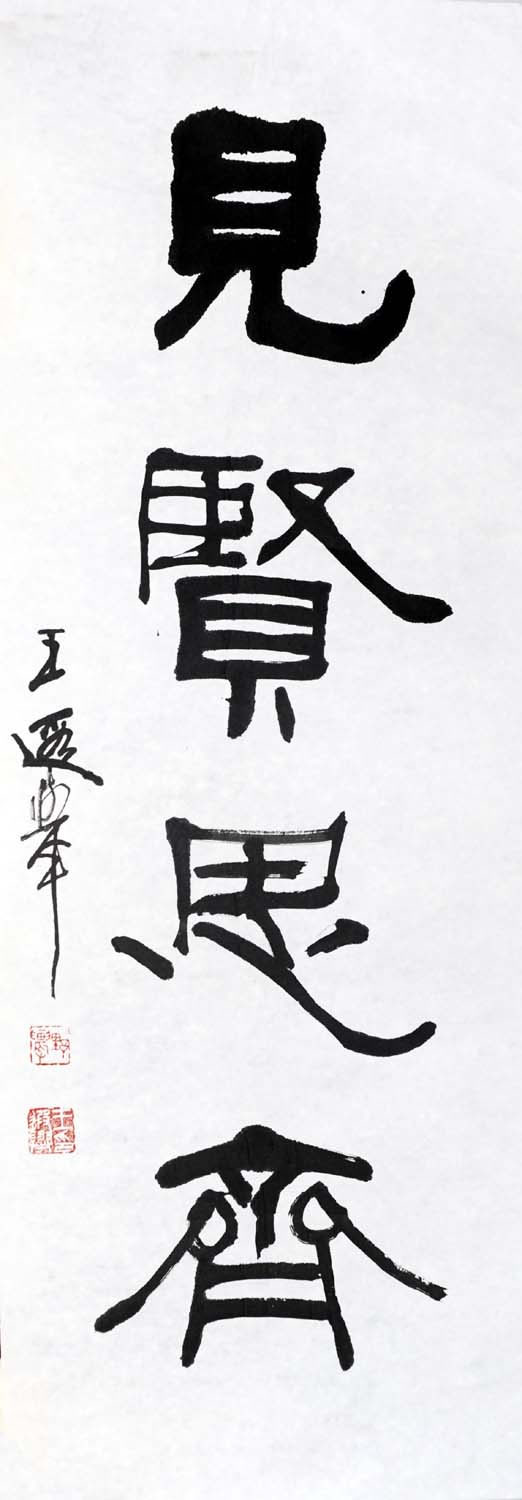 見賢思齊
王遐舉